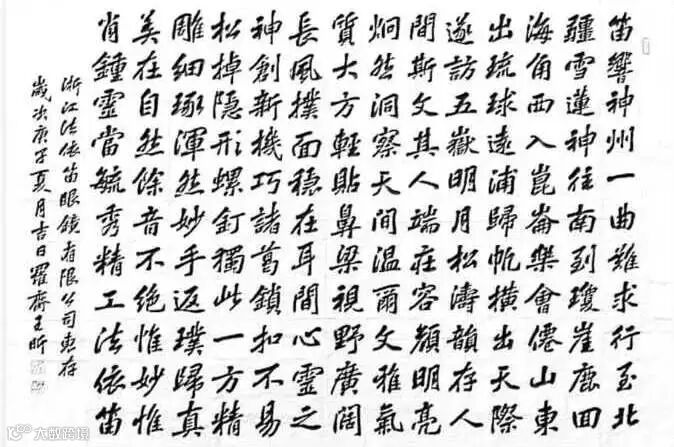 笛響神州一曲難求行至北
疆雪蓮神往南到瓊崖鹿回
海角西入崑崙樂會僊山東
出琉球遠浦歸帆橫出天際
遂訪五嶽明月松濤韻存人
間斯文其人端莊容顏明亮
炯然洞察天間溫爾文雅氣
質大方輕貼鼻梁視野廣闊
長風撲面穩在耳間心靈之
神創新機巧諸葛鎖扣不易
松掉隱形螺釘獨此一方精
雕細琢渾然妙手返璞歸真
美在自然餘音不絕惟妙惟
肖鍾靈當毓秀精工法依笛
浙江法依笛眼鏡有限公司惠存
歲次庚子夏月吉日羅齋王昕
大数跨境